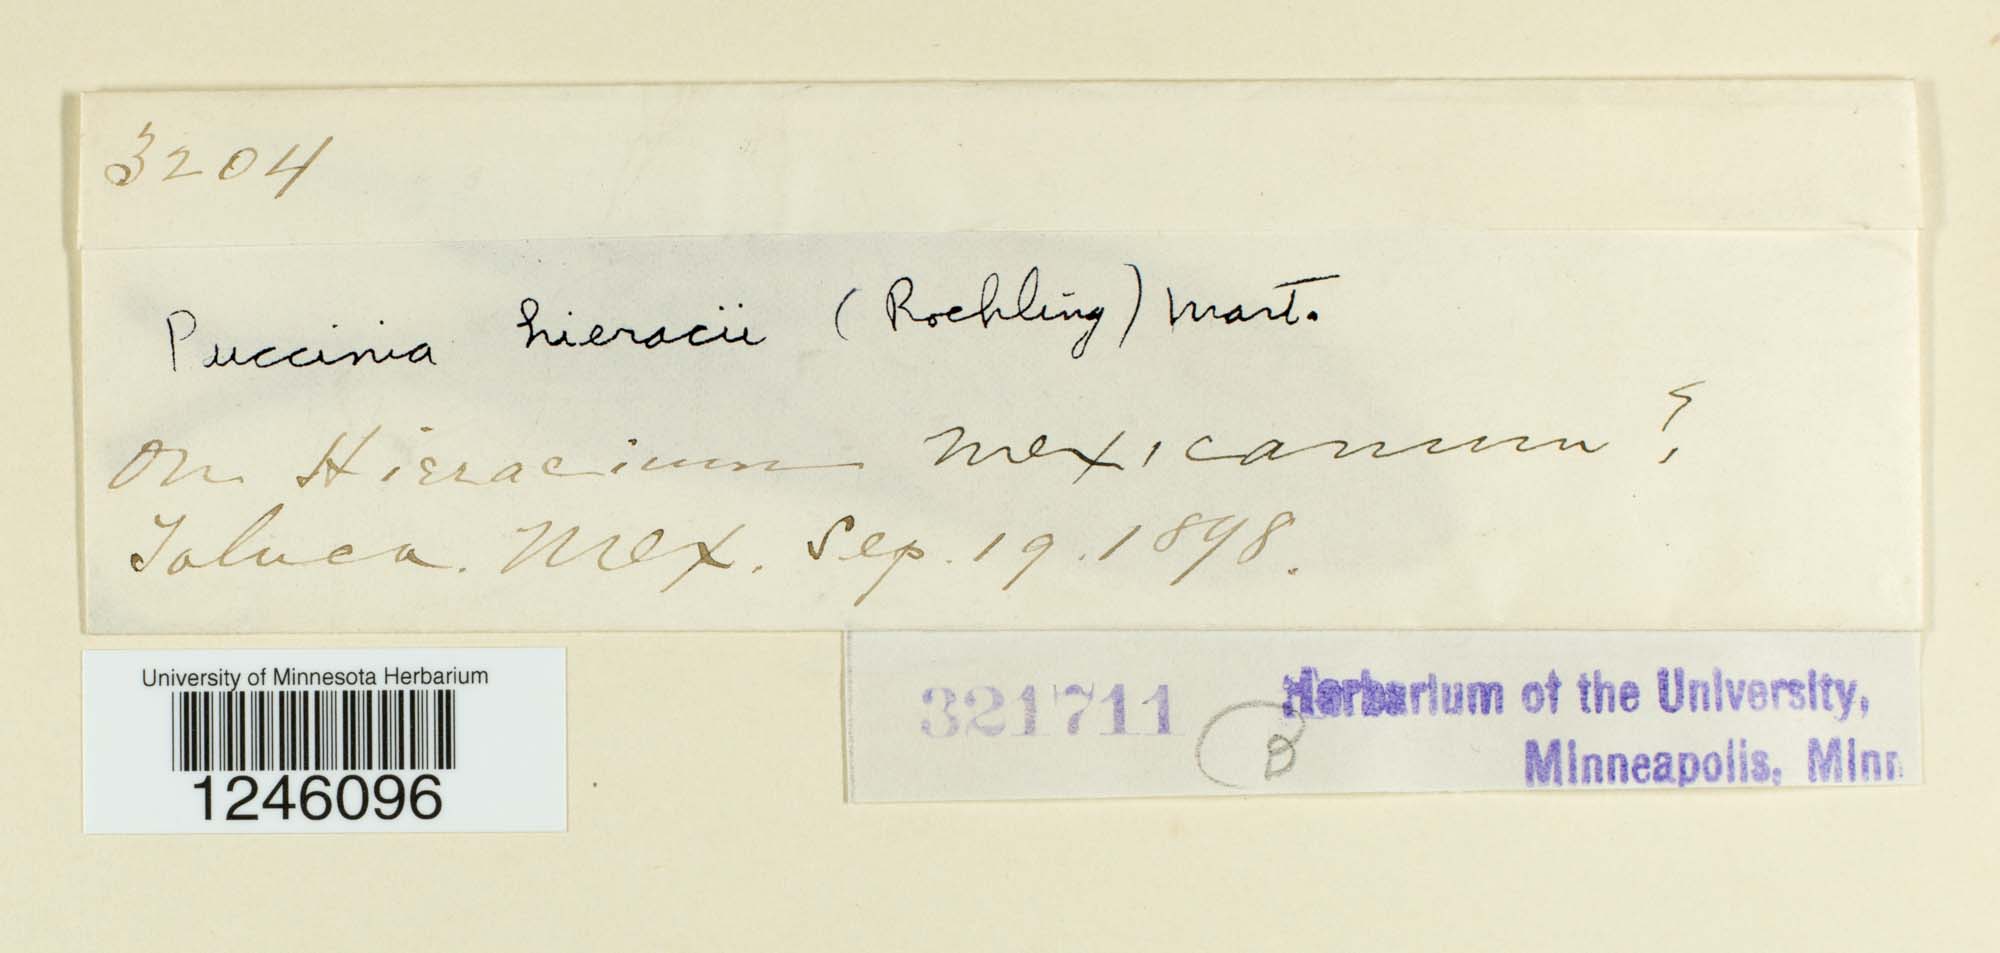 3204
Puccinia hieracii (Roehling) Mart.
On Hieracium mexicanum?
Toluca. Mex. Sep. 19. 1898.
University of Minnesota Herbarium
1246096
321711
B
Herbarium of the University,
Minneapolis, Minn